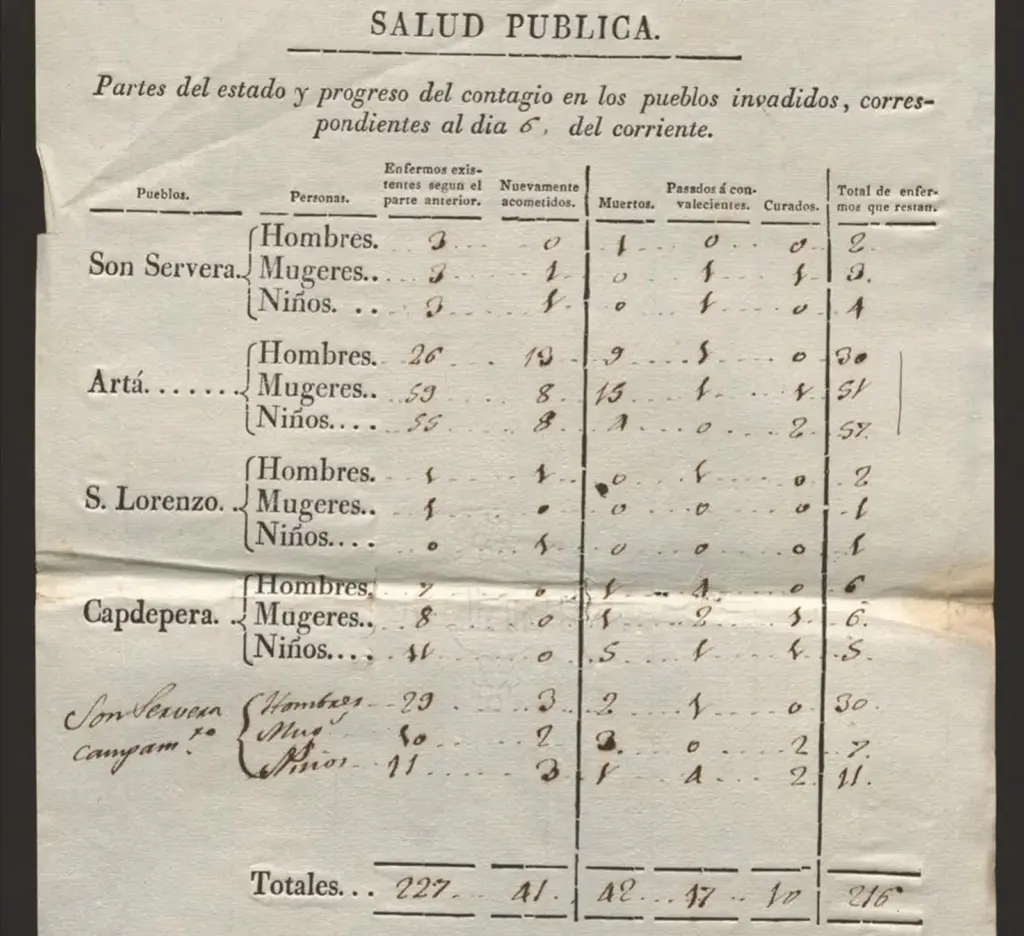 SALUD PUBLICA.
Partes del estado y progreso del contagio en los pueblos invadidos, corres-
pondientes al dia 6, del corriente.
Pueblos. Personas. Enfermos exis-
tentes segun el
parte anterior. Nuevamente
acometidos. Muertos. Pasados á con-
valecientes. Curados. Total de enfer-
mos que restan.
Son Servera. Hombres. 3 0 1 0 0 2
Mugeres.. 3 1 0 1 1 3.
Niños. .. 3 1 0 1 0 4
Artá....... Hombres. 26 13 9 1 0 30
Mugeres.. 59 8 15 1 1 51
Niños.... 55 8 4 0 2 57.
S. Lorenzo. . Hombres. 1 1 0 1 0 2
Mugeres.. 1 0 0 0 0 1
Niños.... 0 1 0 0 0 1
Capdepera. . Hombres. 7 0 1 4 0 6
Mugeres.. 8 0 1 2 1 6.
Niños.... 11 0 5 1 1 5.
Son Servera
campam.to Hombres 29 3 2 1 0 30.
Mug.s 10 2 3 0 2 7.
Niños 11 3 1 4 2 11.
Totales... 227 41. 42 17 10 216